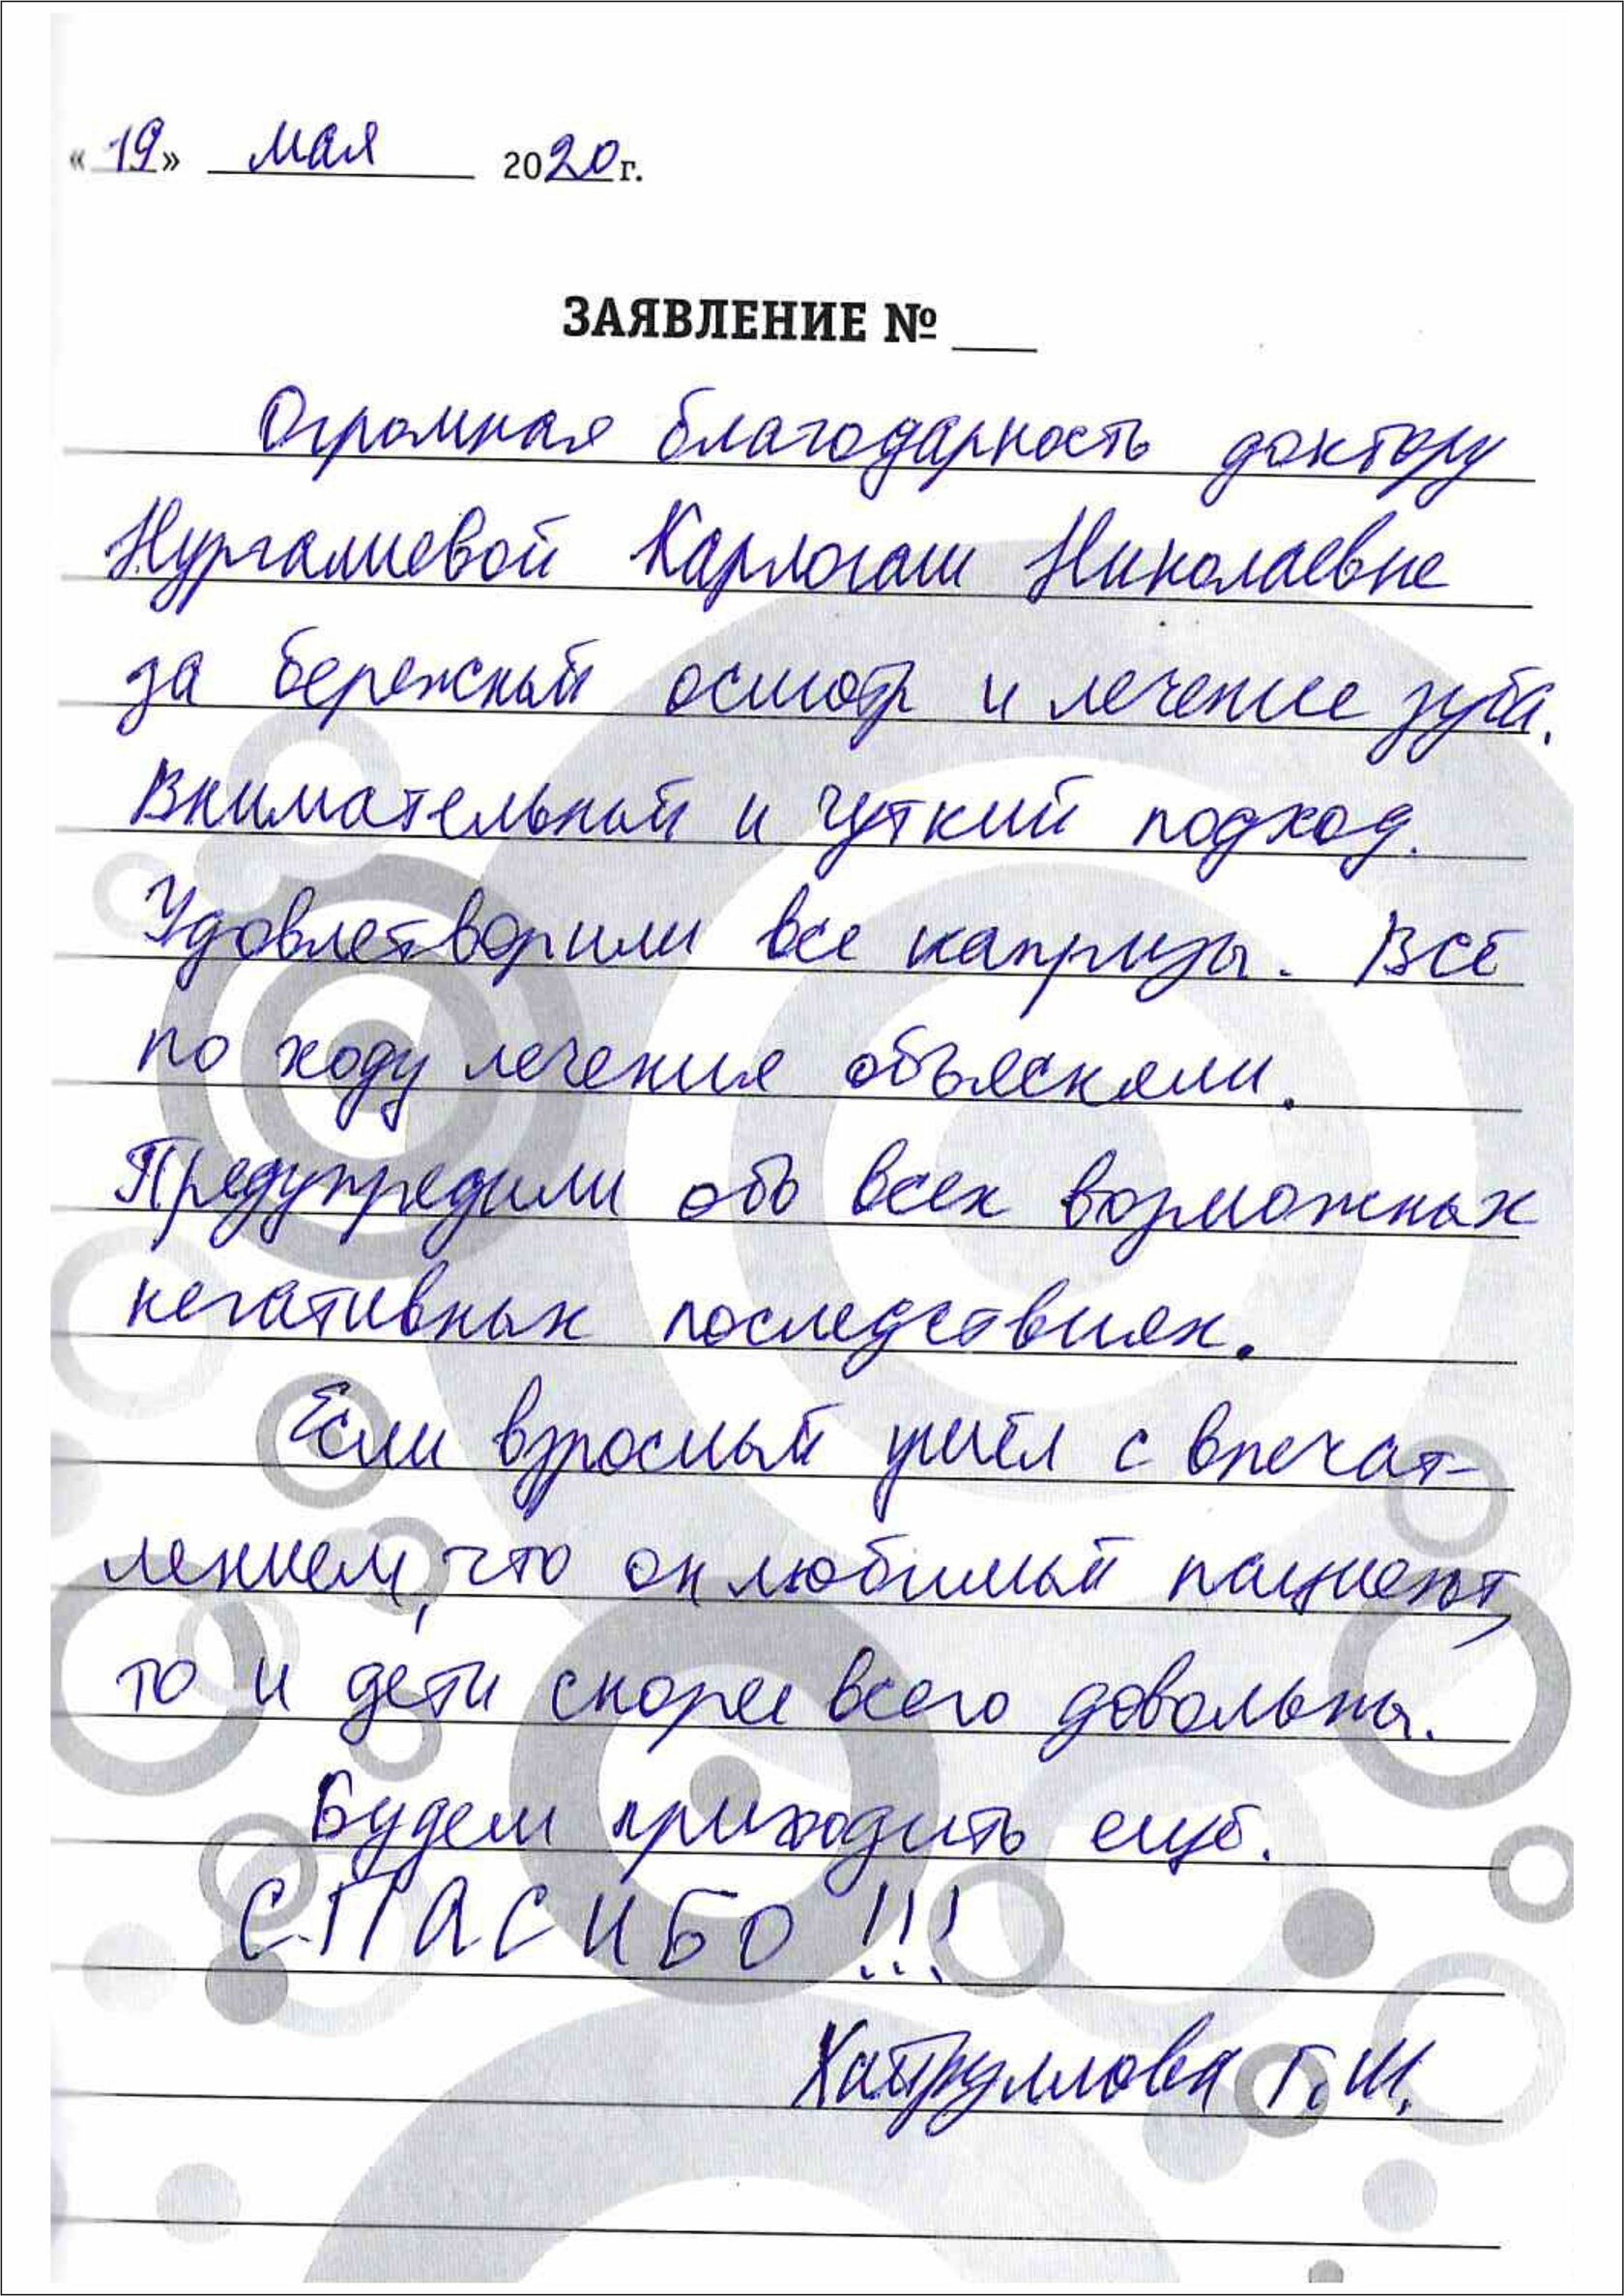 « 19 » мая 2020 г.
ЗАЯВЛЕНИЕ № ___
Огромная благодарность доктору
Нургалиевой Карлогаш Николаевне
за бережный осмотр и лечение зуба.
Внимательный и чуткий подход.
Удовлетворили все капризы. Всё
по ходу лечения объясняли.
Предупредили обо всех возможных
негативных последствиях.
Если взрослый ушёл с впечат-
лением, что он любимый пациент,
то и дети скорее всего довольны.
Будем приходить ещё.
СПАСИБО!!!
Хайруллова Г.Ш.